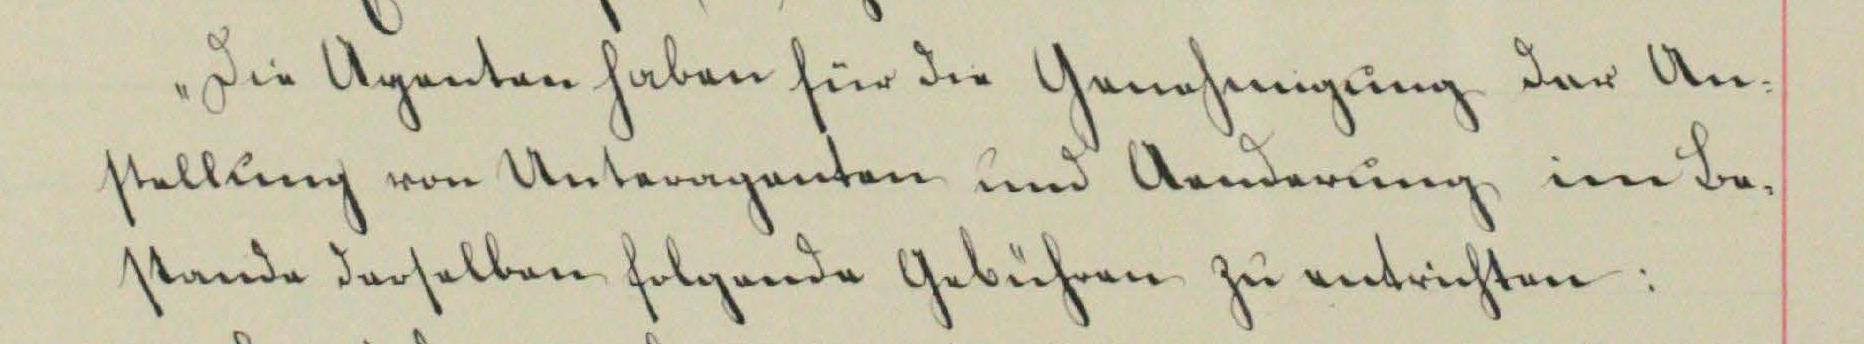 „Die Agenten haben für die Genehmigung der An-
stellung von Unteragenten und Aenderung im Be-
stande derselben folgende Gebühren zu entrichten: